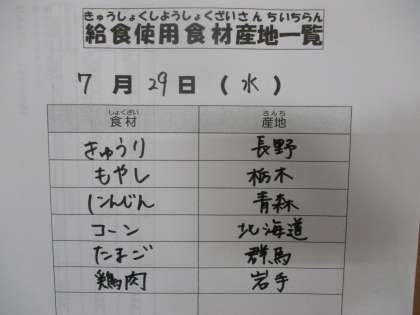 きゅうしょくしようしょくざいさんちいちらん
給食使用食材産地一覧
7月29日(水)
しょくざい さんち
食材 産地
きゅうり 長野
もやし 栃木
にんじん 青森
コーン 北海道
たまご 群馬
鶏肉 岩手